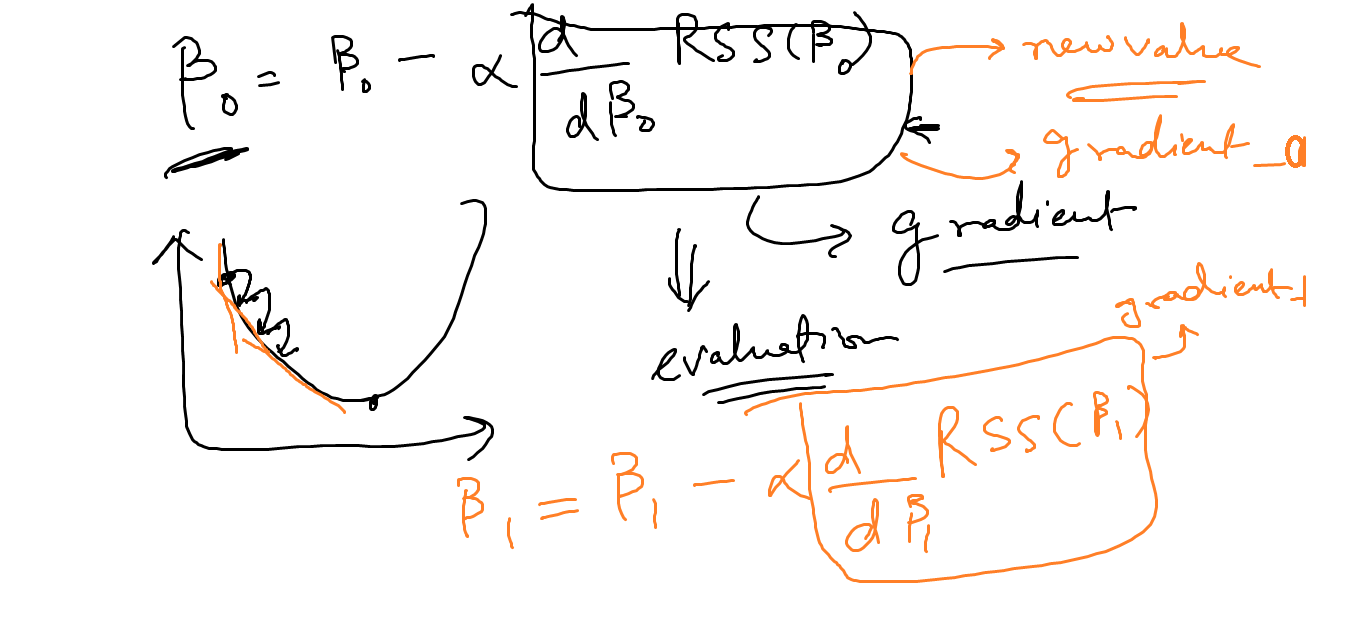 β₀ = β₀ - α d/dβ₀ RSS(β₀)
new value
gradient_0
gradient
evaluation
gradient_1
β₁ = β₁ - α d/dβ₁ RSS(β₁)